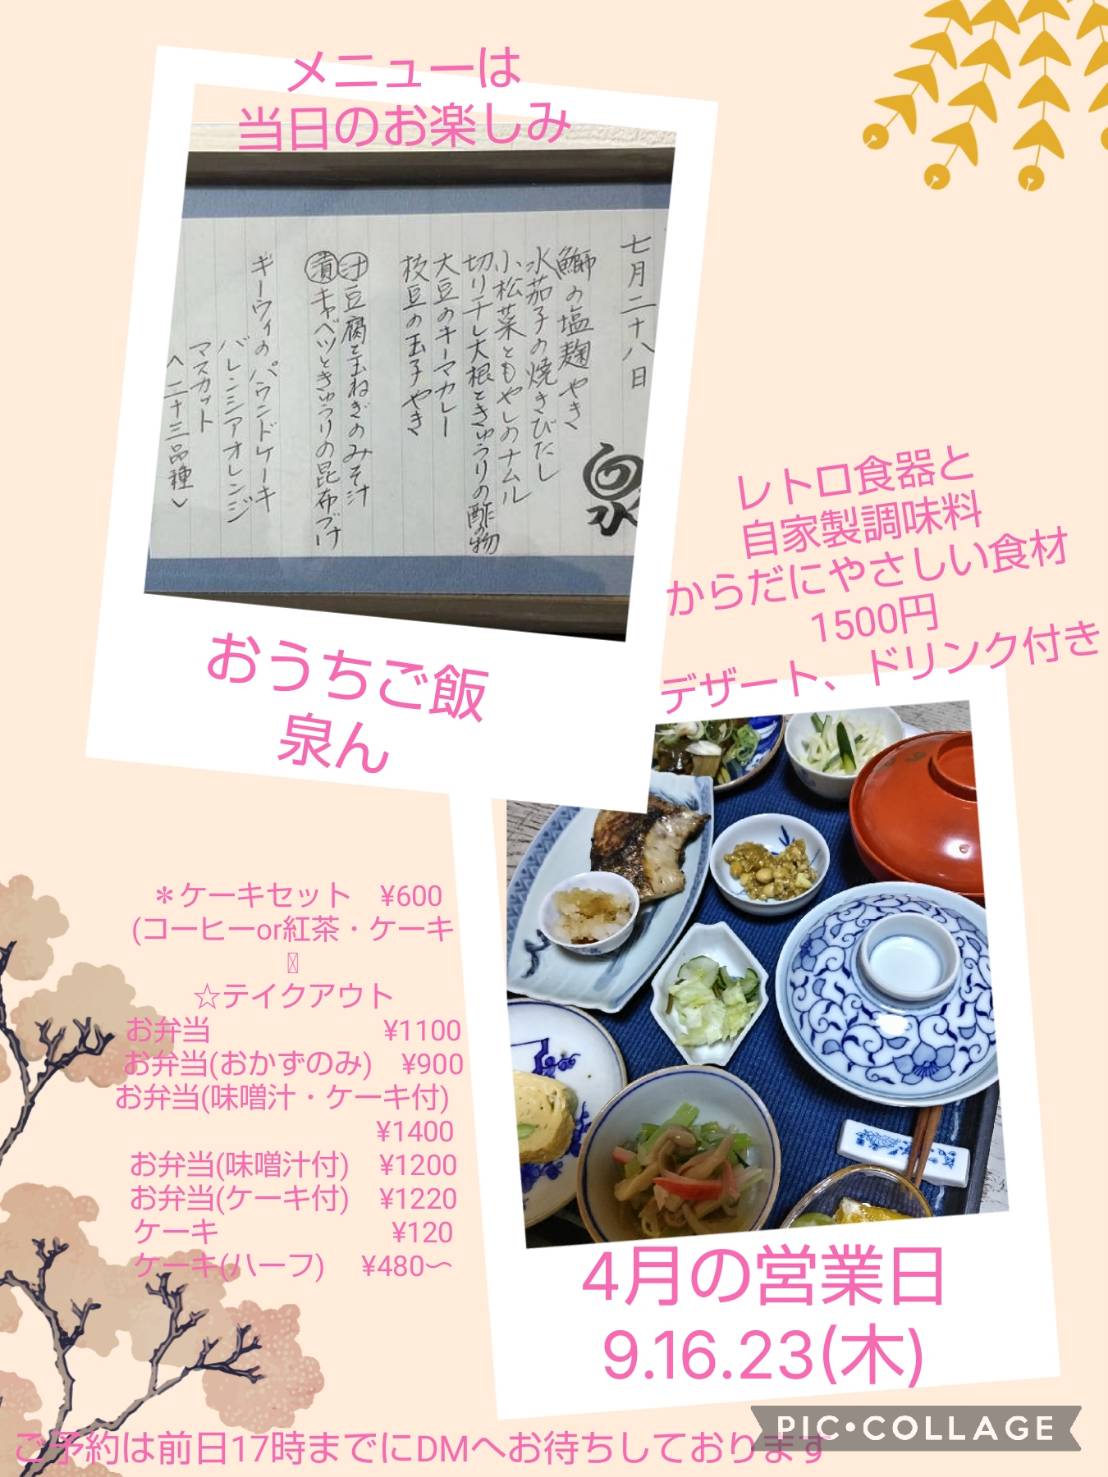 メニューは
当日のお楽しみ
七月二十八日
鰤の塩麹やき
水茄子の焼きびたし
小松菜ともやしのナムル
切り干し大根ときゅうりの酢の物
大豆のキーマカレー
枝豆の玉子やき
汁 豆腐と玉ねぎのみそ汁
漬 キャベツときゅうりの昆布づけ
キーウィのパウンドケーキ
バレンシアオレンジ
マスカット
〈二十三品種〉
泉
おうちご飯
泉ん
レトロ食器と
自家製調味料
からだにやさしい食材
1500円
デザート、ドリンク付き
＊ケーキセット ¥600
(コーヒーor紅茶・ケーキ
☆テイクアウト
お弁当 ¥1100
お弁当(おかずのみ) ¥900
お弁当(味噌汁・ケーキ付)
¥1400
お弁当(味噌汁付) ¥1200
お弁当(ケーキ付) ¥1220
ケーキ ¥120
ケーキ(ハーフ) ¥480〜
4月の営業日
9.16.23(木)
ご予約は前日17時までにDMへお待ちしております
PIC•COLLAGE